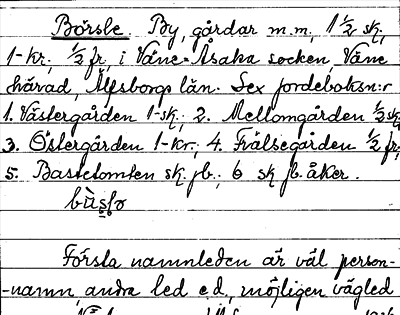 Börsle. By, gårdar m.m., 1 1/2 sk,
1-kr, 1/2 fr, i Väne-Åsaka socken, Väne
härad, Älfsborgs län. Sex jordeboksn:r
1. Västergården 1-sk.; 2. Mellomgården 1/2 sk,
3. Östergården 1-kr.; 4. Frälsegården 1/2 fr,
5. Bastetomten sk. jb.; 6 sk jb. åker.
Första namnleden är väl person-
-namn, andra led ed, möjligen vägled